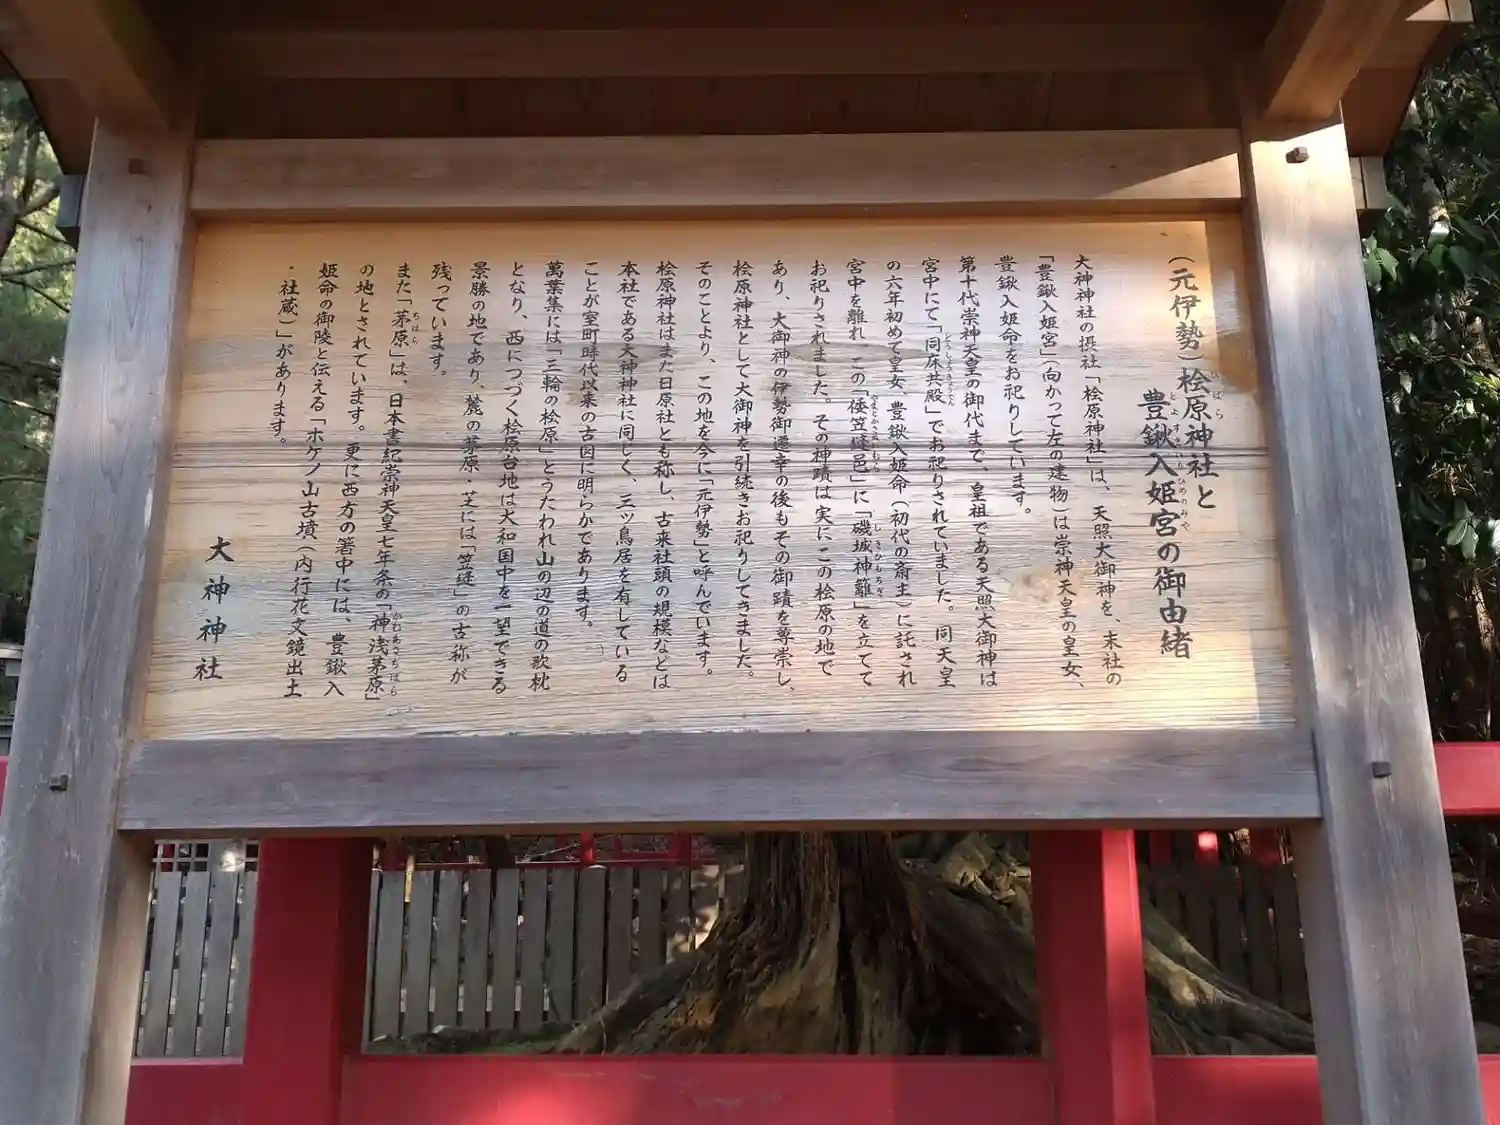 （元伊勢）桧原神社と
豊鍬入姫宮の御由緒
大神神社の摂社「桧原神社」は、天照大御神を、末社の
「豊鍬入姫宮」（向かって左の建物）は崇神天皇の皇女、
豊鍬入姫命をお祀りしています。
第十代崇神天皇の御代まで、皇祖である天照大御神は
宮中にて「同床共殿」でお祀りされていました。同天皇
の六年初めて皇女、豊鍬入姫命（初代の斎主）に託され
宮中を離れ この「倭笠縫邑」に「磯城神籬」を立てて
お祀りされました。その神蹟は実にこの桧原の地で
あり、大御神の伊勢御遷幸の後もその御蹟を尊崇し、
桧原神社として大御神を引続きお祀りしてきました。
そのことより、この地を今に「元伊勢」と呼んでいます。
桧原神社はまた日原社とも称し、古来社頭の規模などは
本社である大神神社に同じく、三ツ鳥居を有している
ことが室町時代以来の古図に明らかであります。
萬葉集には「三輪の桧原」とうたわれ山の辺の道の歌枕
となり、西につづく桧原台地は大和国中を一望できる
景勝の地であり、麓の茅原・芝には「笠縫」の古称が
残っています。
また「茅原」は、日本書紀崇神天皇七年条の「神浅茅原」
の地とされています。更に西方の箸中には、豊鍬入
姫命の御陵と伝える「ホケノ山古墳（内行花文鏡出土
・社蔵）」があります。
大神神社